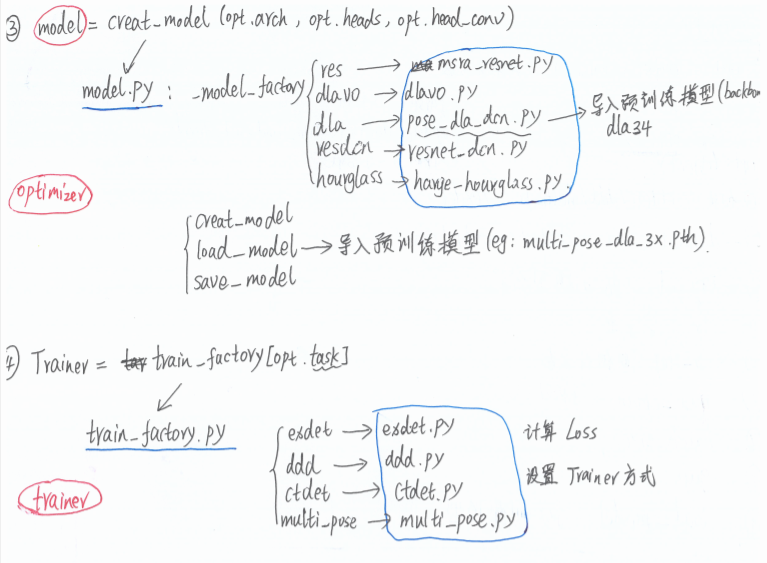 ③ model = creat_model (opt.arch, opt.heads, opt.head_conv)
res → msra_resnet.py
model.py : _model_factory dlav0 → dlav0.py
dla → pose_dla_dcn.py → 导入预训练模型(backbon
dla34
resdcn → resnet_dcn.py
optimizer
hourglass → harje_hourglass.py
creat_model
load_model → 导入预训练模型(eg: multi_pose_dla_3x.pth)
save_model
④ Trainer = train_factory[opt.task]
train_factory.py
exdet → exdet.py 计算 Loss
ddd → ddd.py
设置 Trainer方式
trainer
ctdet → ctdet.py
multi_pose → multi_pose.py